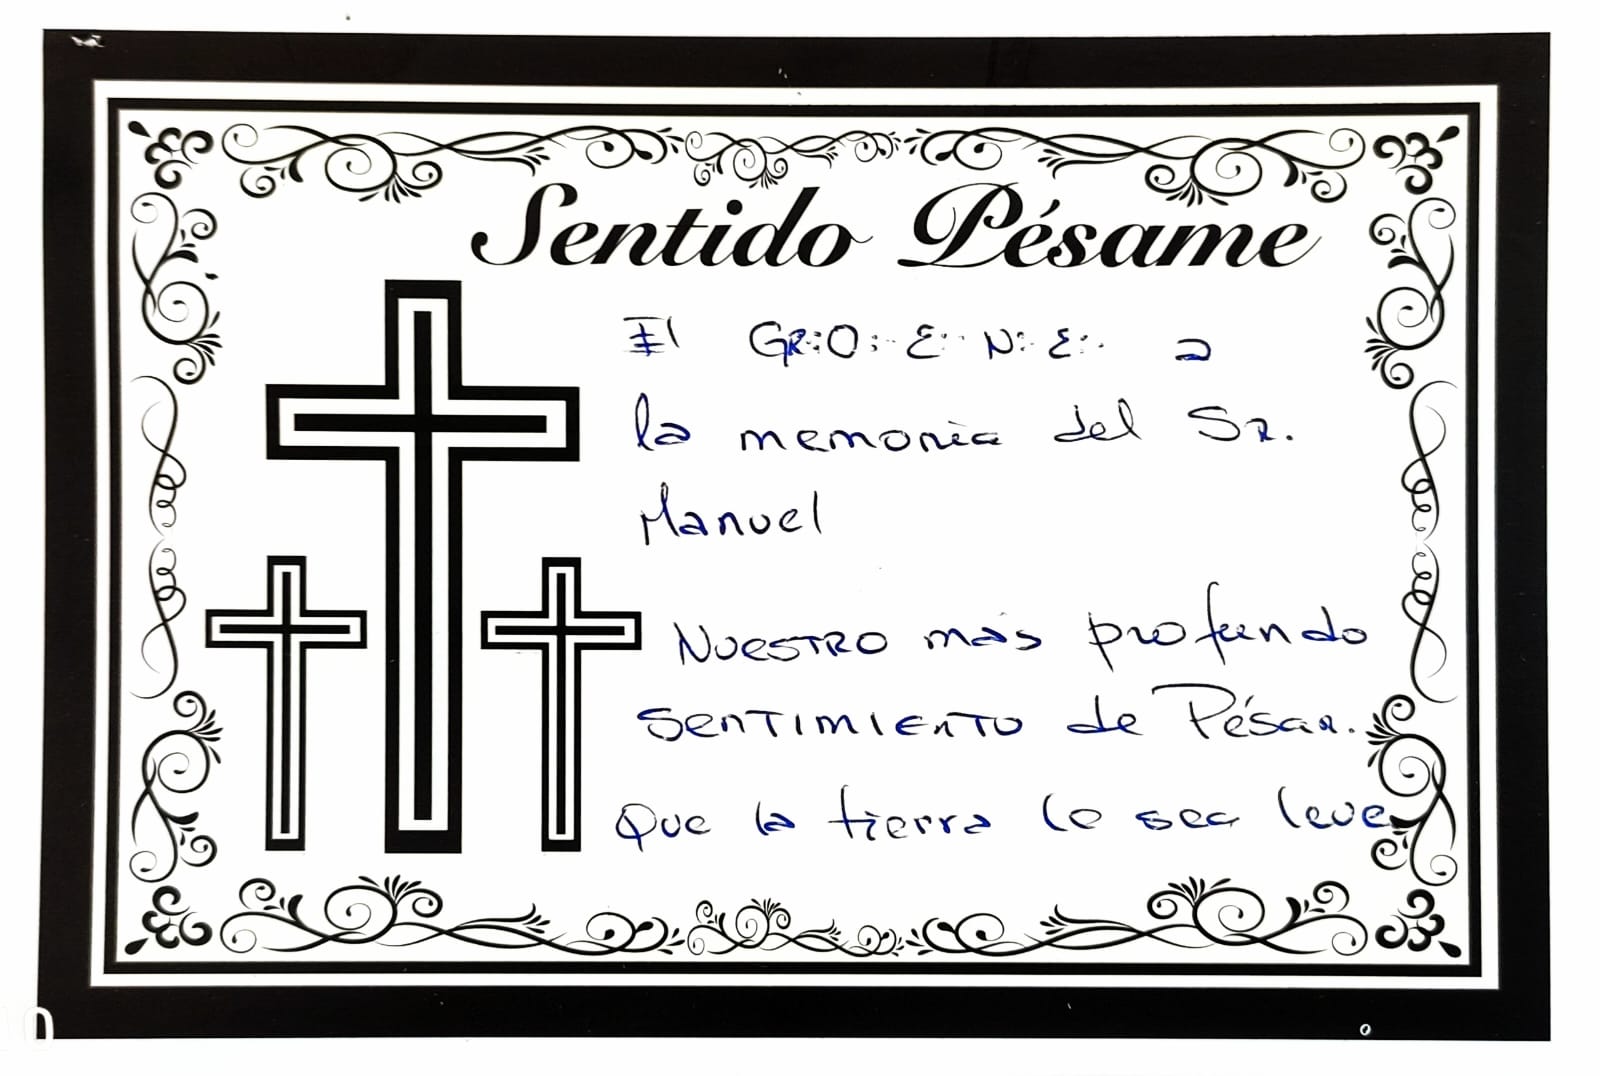 Sentido Pésame
El GR∴O∴ E∴ N∴ E∴ a
la memoria del Sr.
Manuel
NUESTRO más profundo
SENTIMIENTO de Pésar.
Que la tierra le sea leve